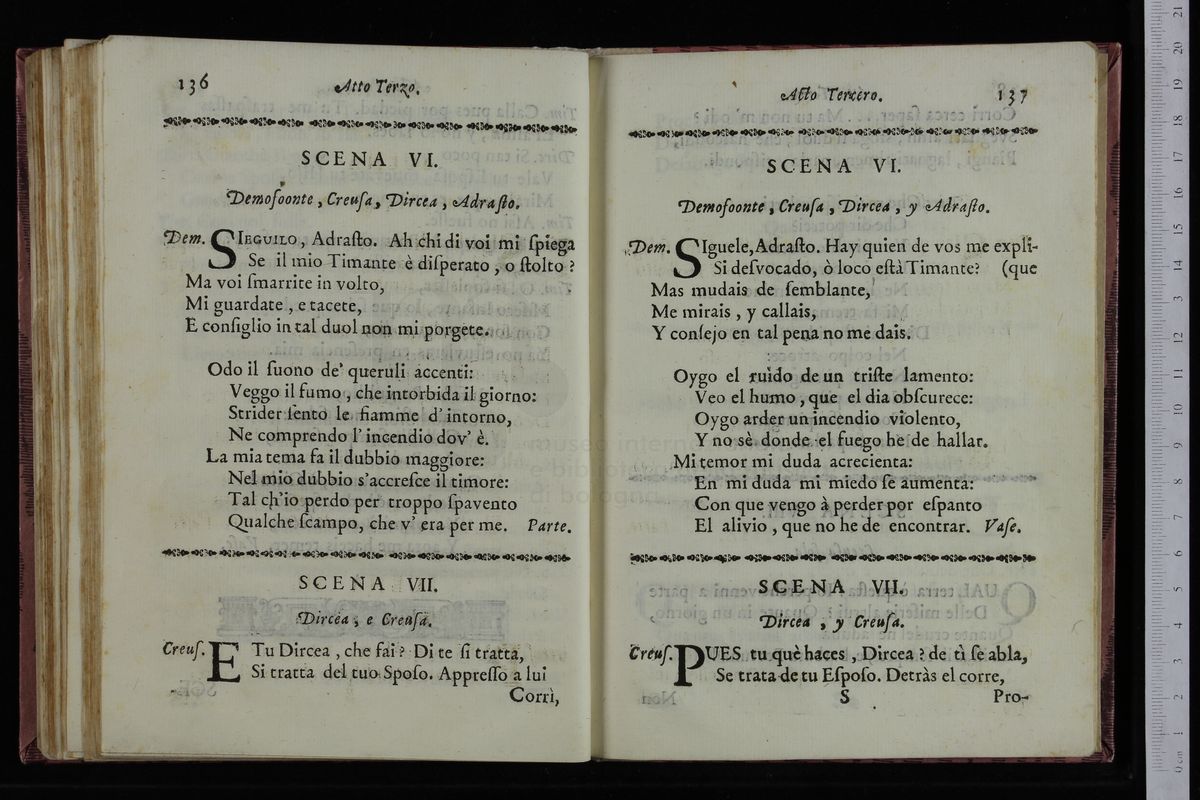 136
Atto Terzo.
SCENA VI.
Demofoonte, Creuſa, Dircea, Adraſto.
Dem. SIEGUILO, Adraſto. Ah chi di voi mi ſpiega
Se il mio Timante è diſperato, o ſtolto?
Ma voi ſmarrite in volto,
Mi guardate, e tacete,
E conſiglio in tal duol non mi porgete.
Odo il ſuono de' queruli accenti:
Veggo il fumo, che intorbida il giorno:
Strider ſento le fiamme d'intorno,
Ne comprendo l'incendio dov' è.
La mia tema fa il dubbio maggiore:
Nel mio dubbio s'accreſce il timore:
Tal ch'io perdo per troppo ſpavento
Qualche ſcampo, che v' era per me. Parte.
SCENA VII.
Dircea, e Creuſa.
Creuſ. E Tu Dircea, che fai? Di te ſi tratta,
Si tratta del tuo Spoſo. Appreſſo a lui
Corri,
Acto Tercero.
137
SCENA VI.
Demofoonte, Creuſa, Dircea, y Adraſto.
Dem. SIguele, Adraſto. Hay quien de vos me expli-
Si deſvocado, ò loco eſtà Timante? (que
Mas mudais de ſemblante,
Me mirais, y callais,
Y conſejo en tal pena no me dais.
Oygo el ruido de un triſte lamento:
Veo el humo, que el dia obſcurece:
Oygo arder un incendio violento,
Y no sè donde el fuego hè de hallar.
Mi temor mi duda acrecienta:
En mi duda mi miedo ſe aumenta:
Con que vengo à perder por eſpanto
El alivio, que no he de encontrar. Vaſe.
SCENA VII.
Dircea, y Creuſa.
Creuſ. PUES tu què haces, Dircea? de tì ſe abla,
Se trata de tu Eſpoſo. Detràs el corre,
S
Pro-